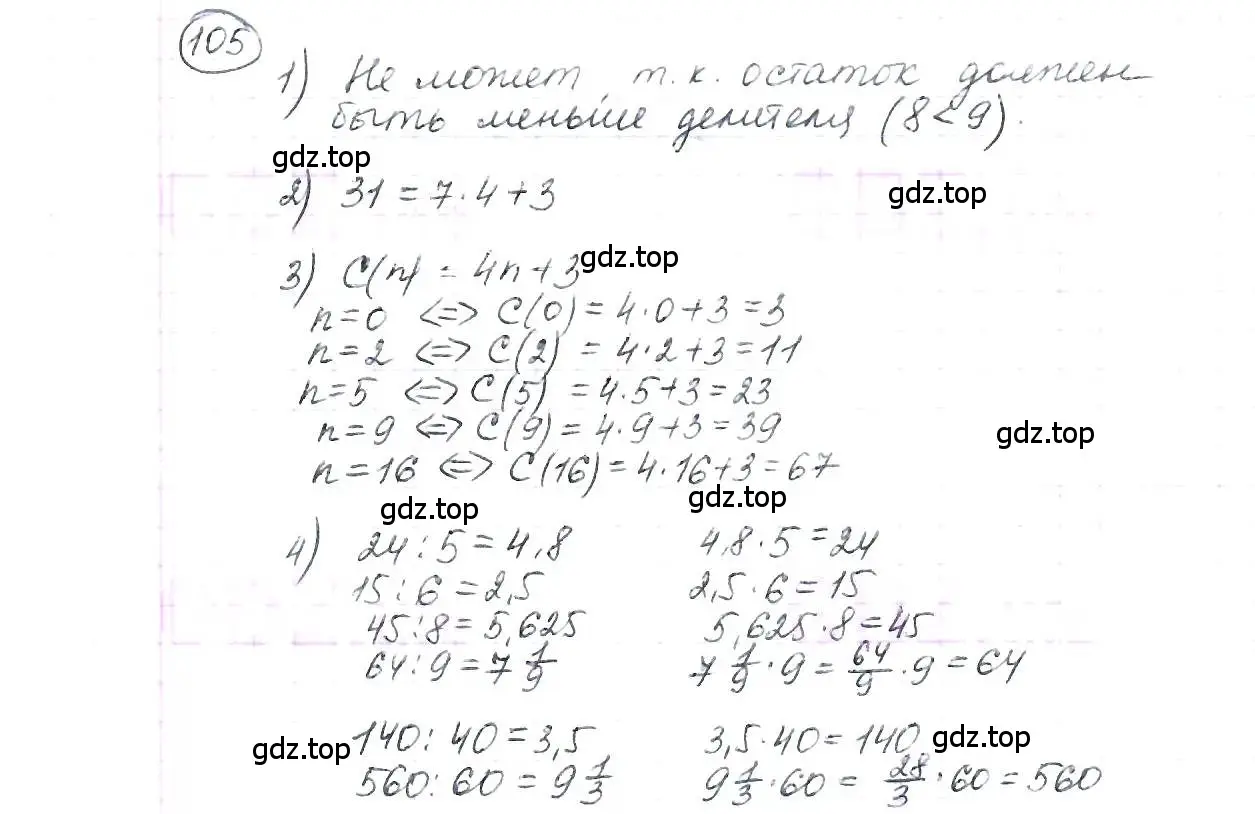 105
1) Не может, т.к. остаток должен
быть меньше делителя (8<9).
gdz.top
2) 31 = 7·4+3
gdz.top
3) C(n) = 4n+3
gdz.top
n=0 <=> C(0) = 4·0+3=3
n=2 <=> C(2) = 4·2+3=11
n=5 <=> C(5) = 4·5+3=23
n=9 <=> C(9) = 4·9+3=39
gdz.top
n=16 <=> C(16)=4·16+3=67
gdz.top
gdz.top
4) 24:5=4,8 4,8·5=24
15:6=2,5 2,5·6=15
45:8=5,625 5,625·8=45
64:9=7 1/9 7 1/9·9=64/9·9=64
gdz.top 140:40=3,5 3,5·40=140 gdz.top
560:60=9 1/3 9 1/3·60=28/3·60=560